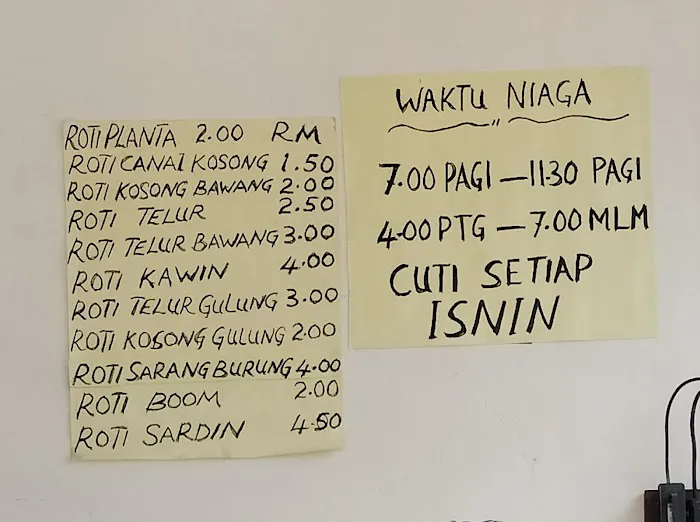 ROTI PLANTA 2.00 RM
ROTI CANAI KOSONG 1.50
ROTI KOSONG BAWANG 2.00
ROTI TELUR 2.50
ROTI TELUR BAWANG 3.00
ROTI KAWIN 4.00
ROTI TELUR GULUNG 3.00
ROTI KOSONG GULUNG 2.00
ROTI SARANG BURUNG 4.00
ROTI BOOM 2.00
ROTI SARDIN 4.50
WAKTU NIAGA
7.00 PAGI – 11.30 PAGI
4.00 PTG – 7.00 MLM
CUTI SETIAP
ISNIN